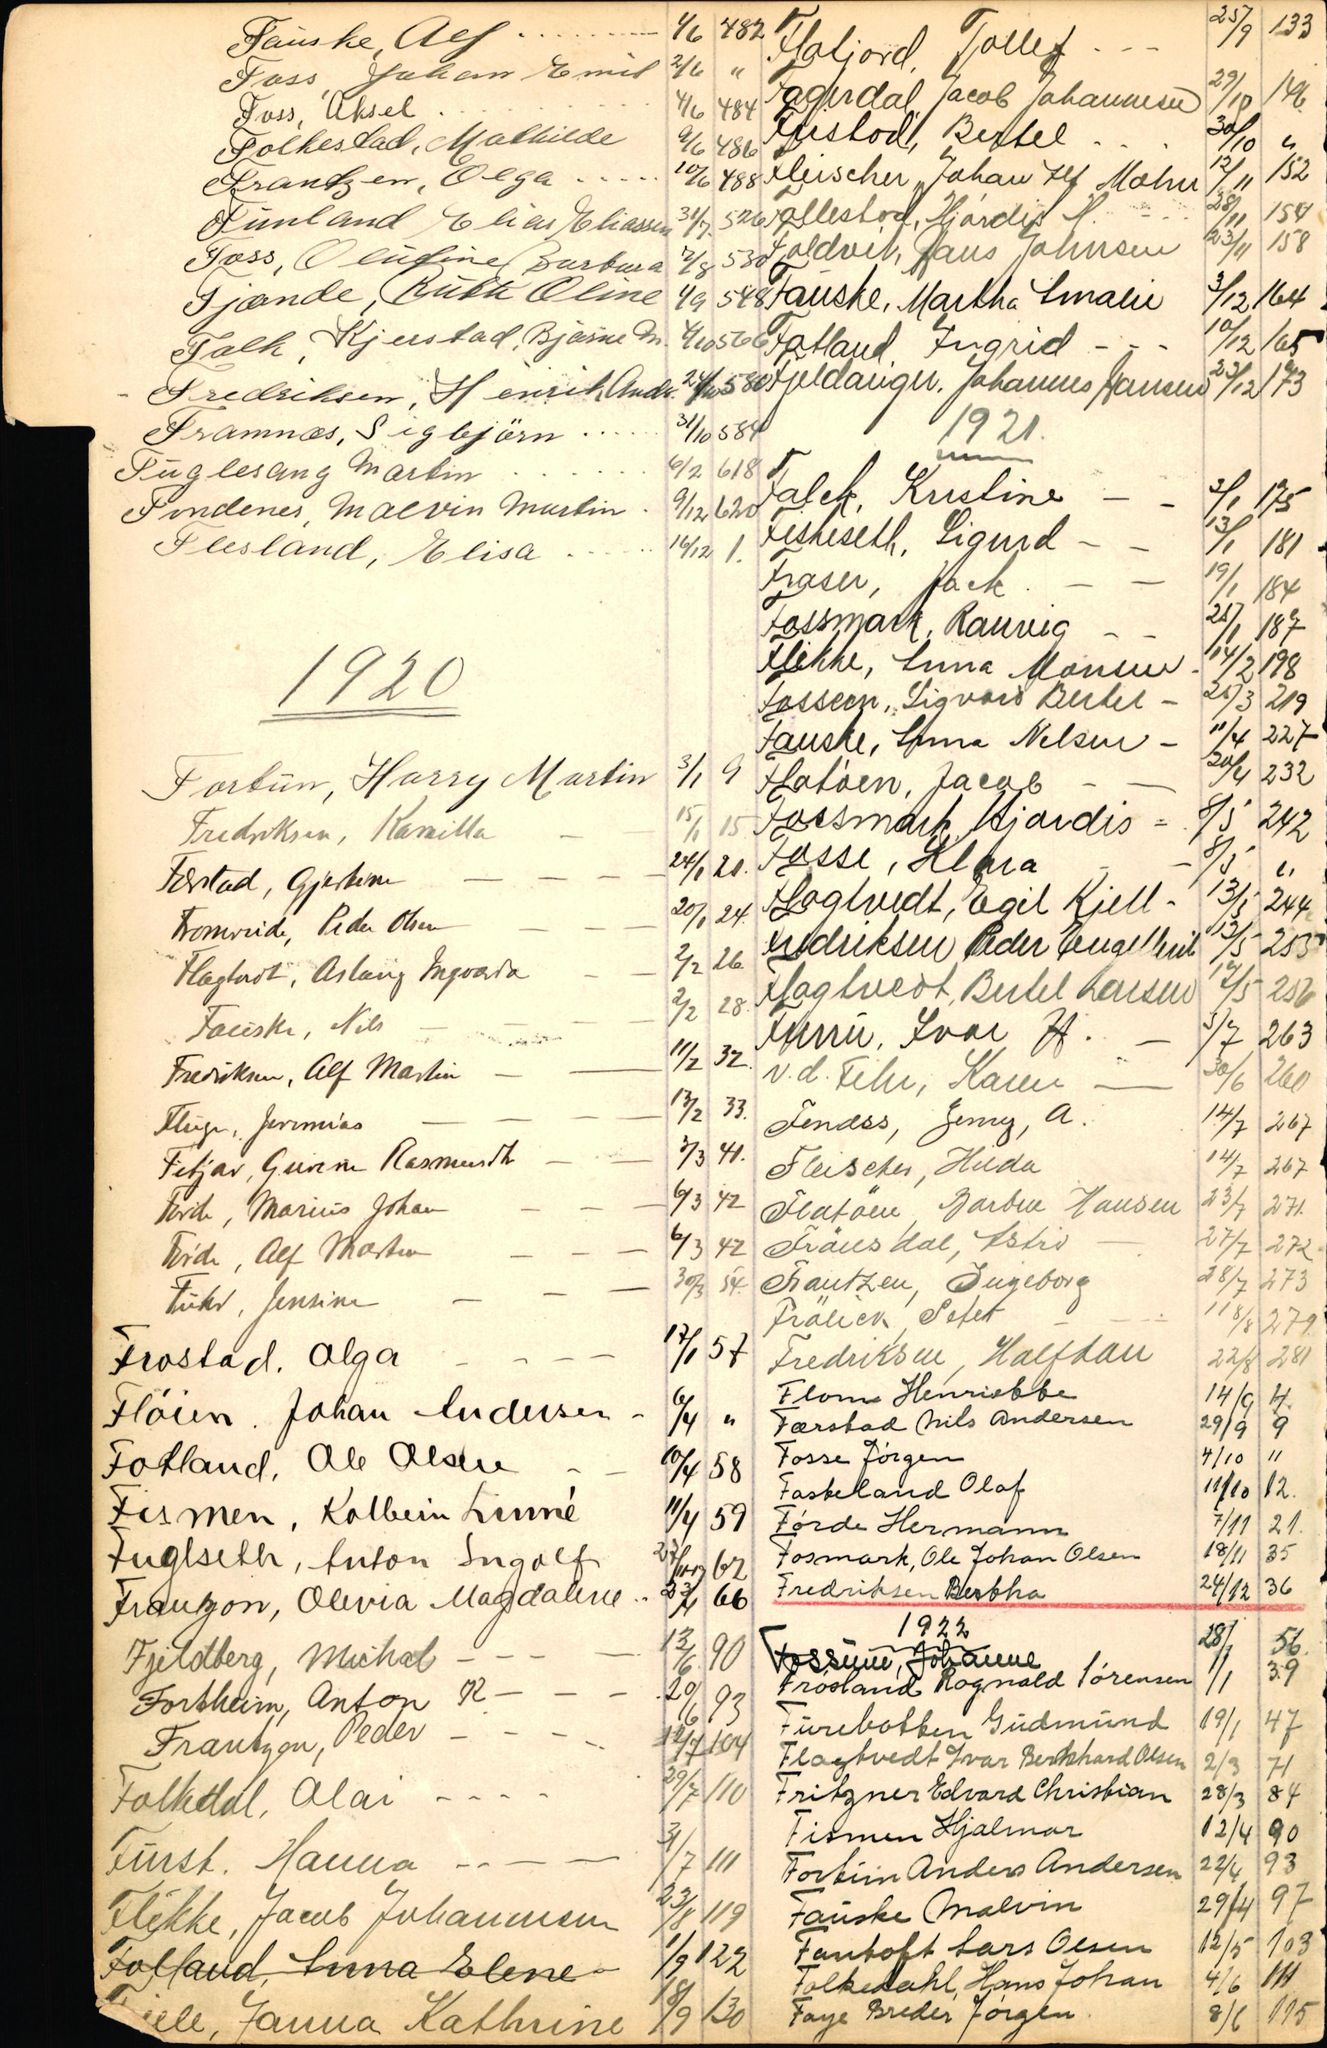 Fauske, Alf 4/6 482
Foss, Johan Emil 2/6 "
Foss, Aksel 4/6 484
Folkestad, Mathilde 9/6 486
Frantzen, Olga 10/6 488
Finland Elias Eliassen 31/7 526
Foss, Olufine Barbara 7/8 530
Fjænde, Ruth Oline 4/9 548
Falk, Kjerstad, Bjarne M. 4/10 566
Fredriksen, Henrik Andr. 24/10 580
Framnæs, Sigbjörn 31/10 584
Fuglesang Martin 6/12 618
Fondenes, Malvin Martin 9/12 620
Flesland, Elisa 16/12 1.
1920
Fortun, Harry Martin 3/1 9
Fredriksen, Kamilla 15/1 15
Færstad, Gjertine 24/1 21.
Fromreide, Peder Olsen 20/1 24.
Flagtvedt, Aslaug Ingvarda 2/2 26
Fauske, Nils 2/2 28.
Fredriksen, Alf Martin 11/2 32.
Fluge, Jeremias 13/2 33.
Fitjar, Gurine Rasmusdtr 1/3 41.
Förde, Marius Johan 6/3 42
Förde, Alf Martin 6/3 42
Führ, Jensine 30/3 54.
Frostad, Olga 17/1 57
Flöien, Johan Andersen 6/4 "
Fotland, Ole Olsen 10/4 58
Fismen, Kolbein Linné 11/4 59
Fuglseth, Anton Ingolf 62
Frantzon, Olivia Magdalene 23/4 66
Fjeldberg, Michal 13/6 90
Fortheim, Anton K 20/6 93
Frantzen, Peder 12/7 104
Folkedal, Olai 29/7 110
Fürst, Hanna 31/7 111
Flekke, Jacob Johannesen 23/8 119
Folland, Anna Elene 1/9 122
Fjele, Janna Kathrine 18/9 130
Flatjord, Tollef 25/9 133
Fagerdal, Jacob Johannesen 29/10 146
Fristod, Bertel 30/10 "
Fleischer, Johan Alf Mohn 12/11 152
Follestad, Hjördis M. 28/11 154
Foldvik, Hans Johnsen 23/11 158
Fauske, Martha Amalie 3/12 164
Fotland, Ingrid 10/12 165
Fjeldanger, Johannes Hansen 23/12 173
1921.
Falck, Kristine 3/1 175
Fiskeseth, Sigurd 13/1 181
Fraser, Jack 19/1 184
Fossmark, Ranveig 25/1 187
Flekke, Anna Monsen 14/2 198
Fosseen, Sigvard Bertel 25/3 219
Fauske, Anna Nelsen 11/4 227
Flatöen, Jacob 20/4 232
Fossmark, Hjordis 8/5 242
Fosse, Klara 8/5 "
Flagtvedt, Egil Kjell 13/5 244
Fredriksen Peder Engelbrit 13/5 253
Flagtvedt, Bertel Larsen 12/5 256
Ivar H. 5/7 263
v.d. Fehr, Karen 30/6 260
Fendss, Jenny, A. 14/7 267
Fleischer, Hilda 14/7 267
Flatöen, Barbra Hansen 23/7 271.
Fröensdal, Astri 27/7 272
Frantzen, Ingeborg 28/7 273
Frölich, Peter 18/8 279
Fredriksen, Halfdan 22/8 281
Flom Henriette 14/9 4.
Færstad Nils Andersen 29/9 9
Fosse Jørgen 4/10 "
Faskeland Olaf 11/10 12.
Førde Hermann 7/11 21.
Fosmark, Ole Johan Olsen 18/11 35
Fredriksen Bertha 24/12 36
1922
Fossum, Johanne 28/1 56.
Frøsland Rognald Sørensen 1/1 39
Furebotten Gudmund 19/1 47
Flagtvedt Ivar Bernhard Olsen 2/3 71
Fritzner Edvard Christian 28/3 84
Fismen Hjalmar 12/4 90
Fortun Anders Andersen 22/4 93
Fauske Malvin 29/4 97
Fantoft Lars Olsen 12/5 103
Folkedahl, Hans Johan 4/6 111
Faye Breder Jørgen 8/6 115